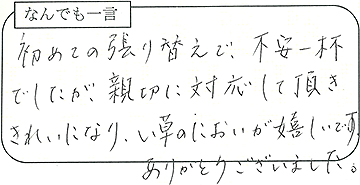 なんでも一言
初めての張り替えで、不安一杯
でしたが、親切に対応して頂き
きれいになり、い草のにおいが嬉しいです。
ありがとうございました。